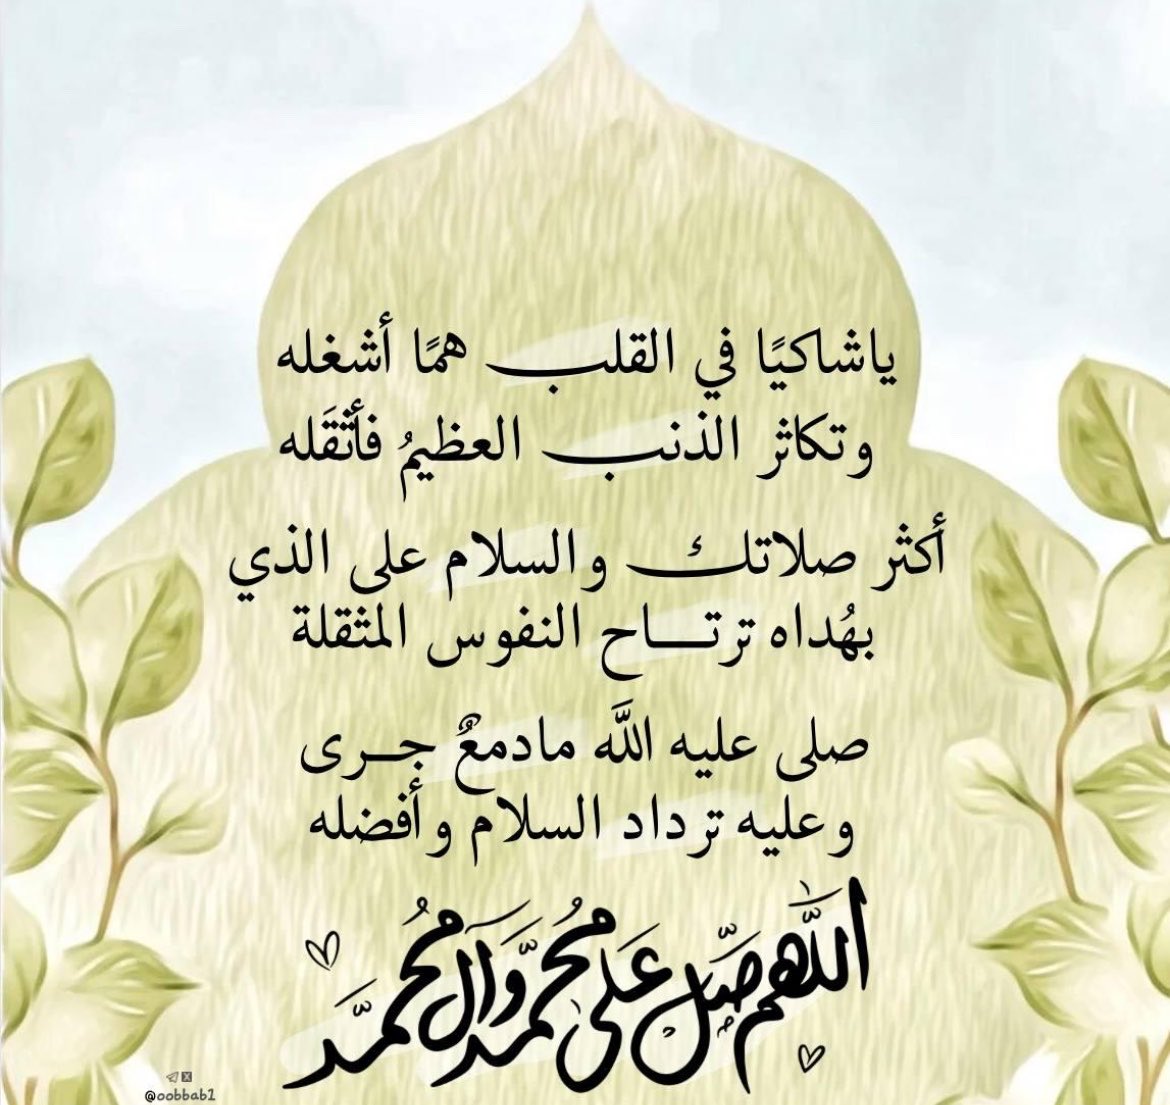 ياشاكيًا في القلب همًا أشغله
وتكاثر الذنب العظيمُ فأثقَله
أكثر صلاتك والسلام على الذي
بهُداه ترتـــاح النفوس المثقلة
صلى عليه اللَّه مادمعٌ جــرى
وعليه ترداد السلام وأفضله
اللَّهم صَلِّ عَلى محُمَّد وَآل محُمَّد
@oobbab1